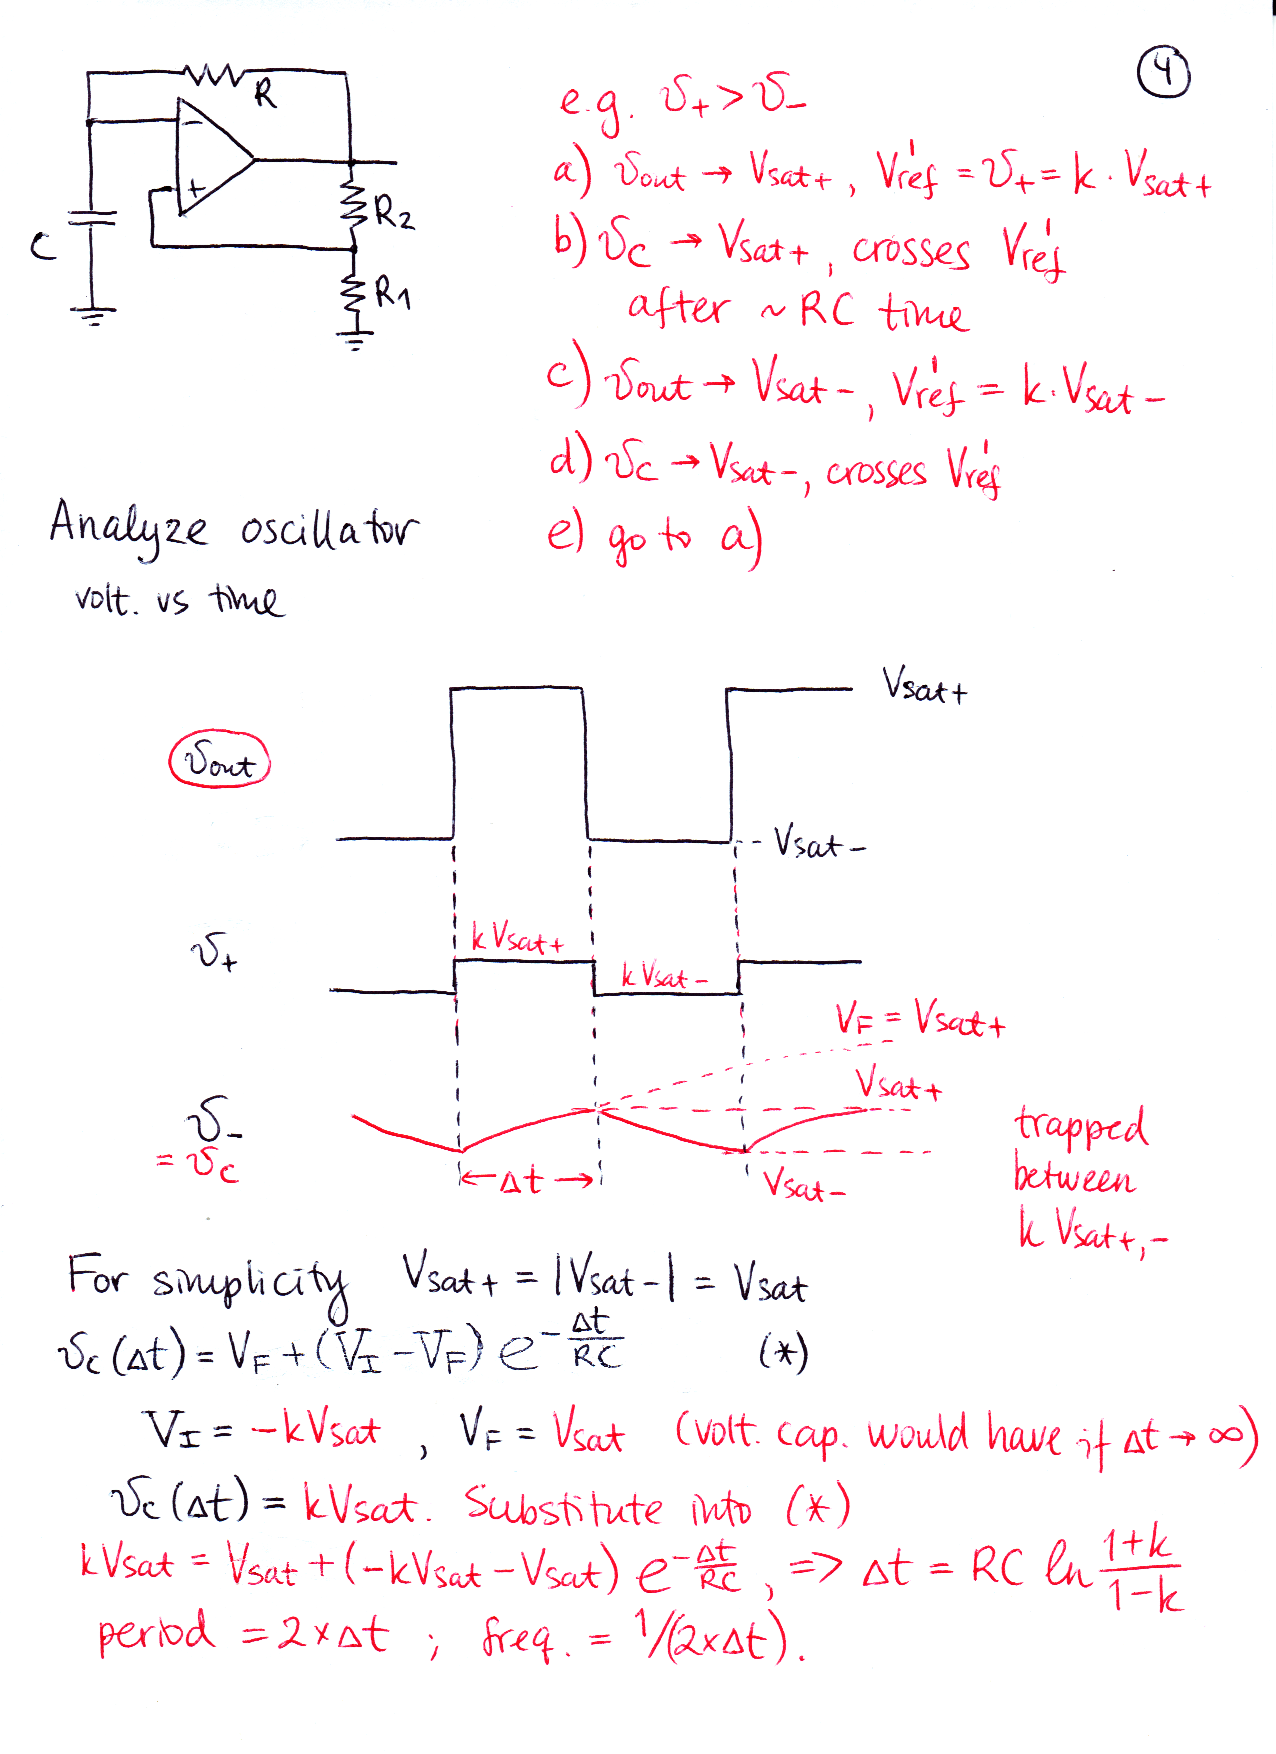 4
R
C
R2
R1
−
+
e.g. v+ > v−
a) vout → Vsat+, V'ref = v+ = k · Vsat+
b) vc → Vsat+, crosses V'ref
after ~ RC time
c) vout → Vsat−, V'ref = k · Vsat−
d) vc → Vsat−, crosses V'ref
e) go to a)
Analyze oscillator
volt. vs time
vout
Vsat+
Vsat−
v+
kVsat+
kVsat−
VF = Vsat+
Vsat+
v−
= vc
← Δt →
Vsat−
trapped
between
k Vsat+,−
For simplicity Vsat+ = |Vsat−| = Vsat
vc(Δt) = VF + (VI − VF) e^−Δt/RC (*)
VI = −kVsat, VF = Vsat (volt. cap. would have if Δt → ∞)
vc(Δt) = kVsat. Substitute into (*)
kVsat = Vsat + (−kVsat − Vsat) e^−Δt/RC, => Δt = RC ln 1+k/1−k
period = 2×Δt ; freq. = 1/(2×Δt).